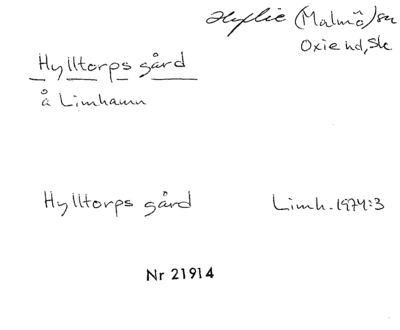 Hyllie (Malmö) sn
Oxie hd, Sk
Hylltorps gård
å Limhamn
Hylltorps gård Limh. 1974:3
Nr 21914